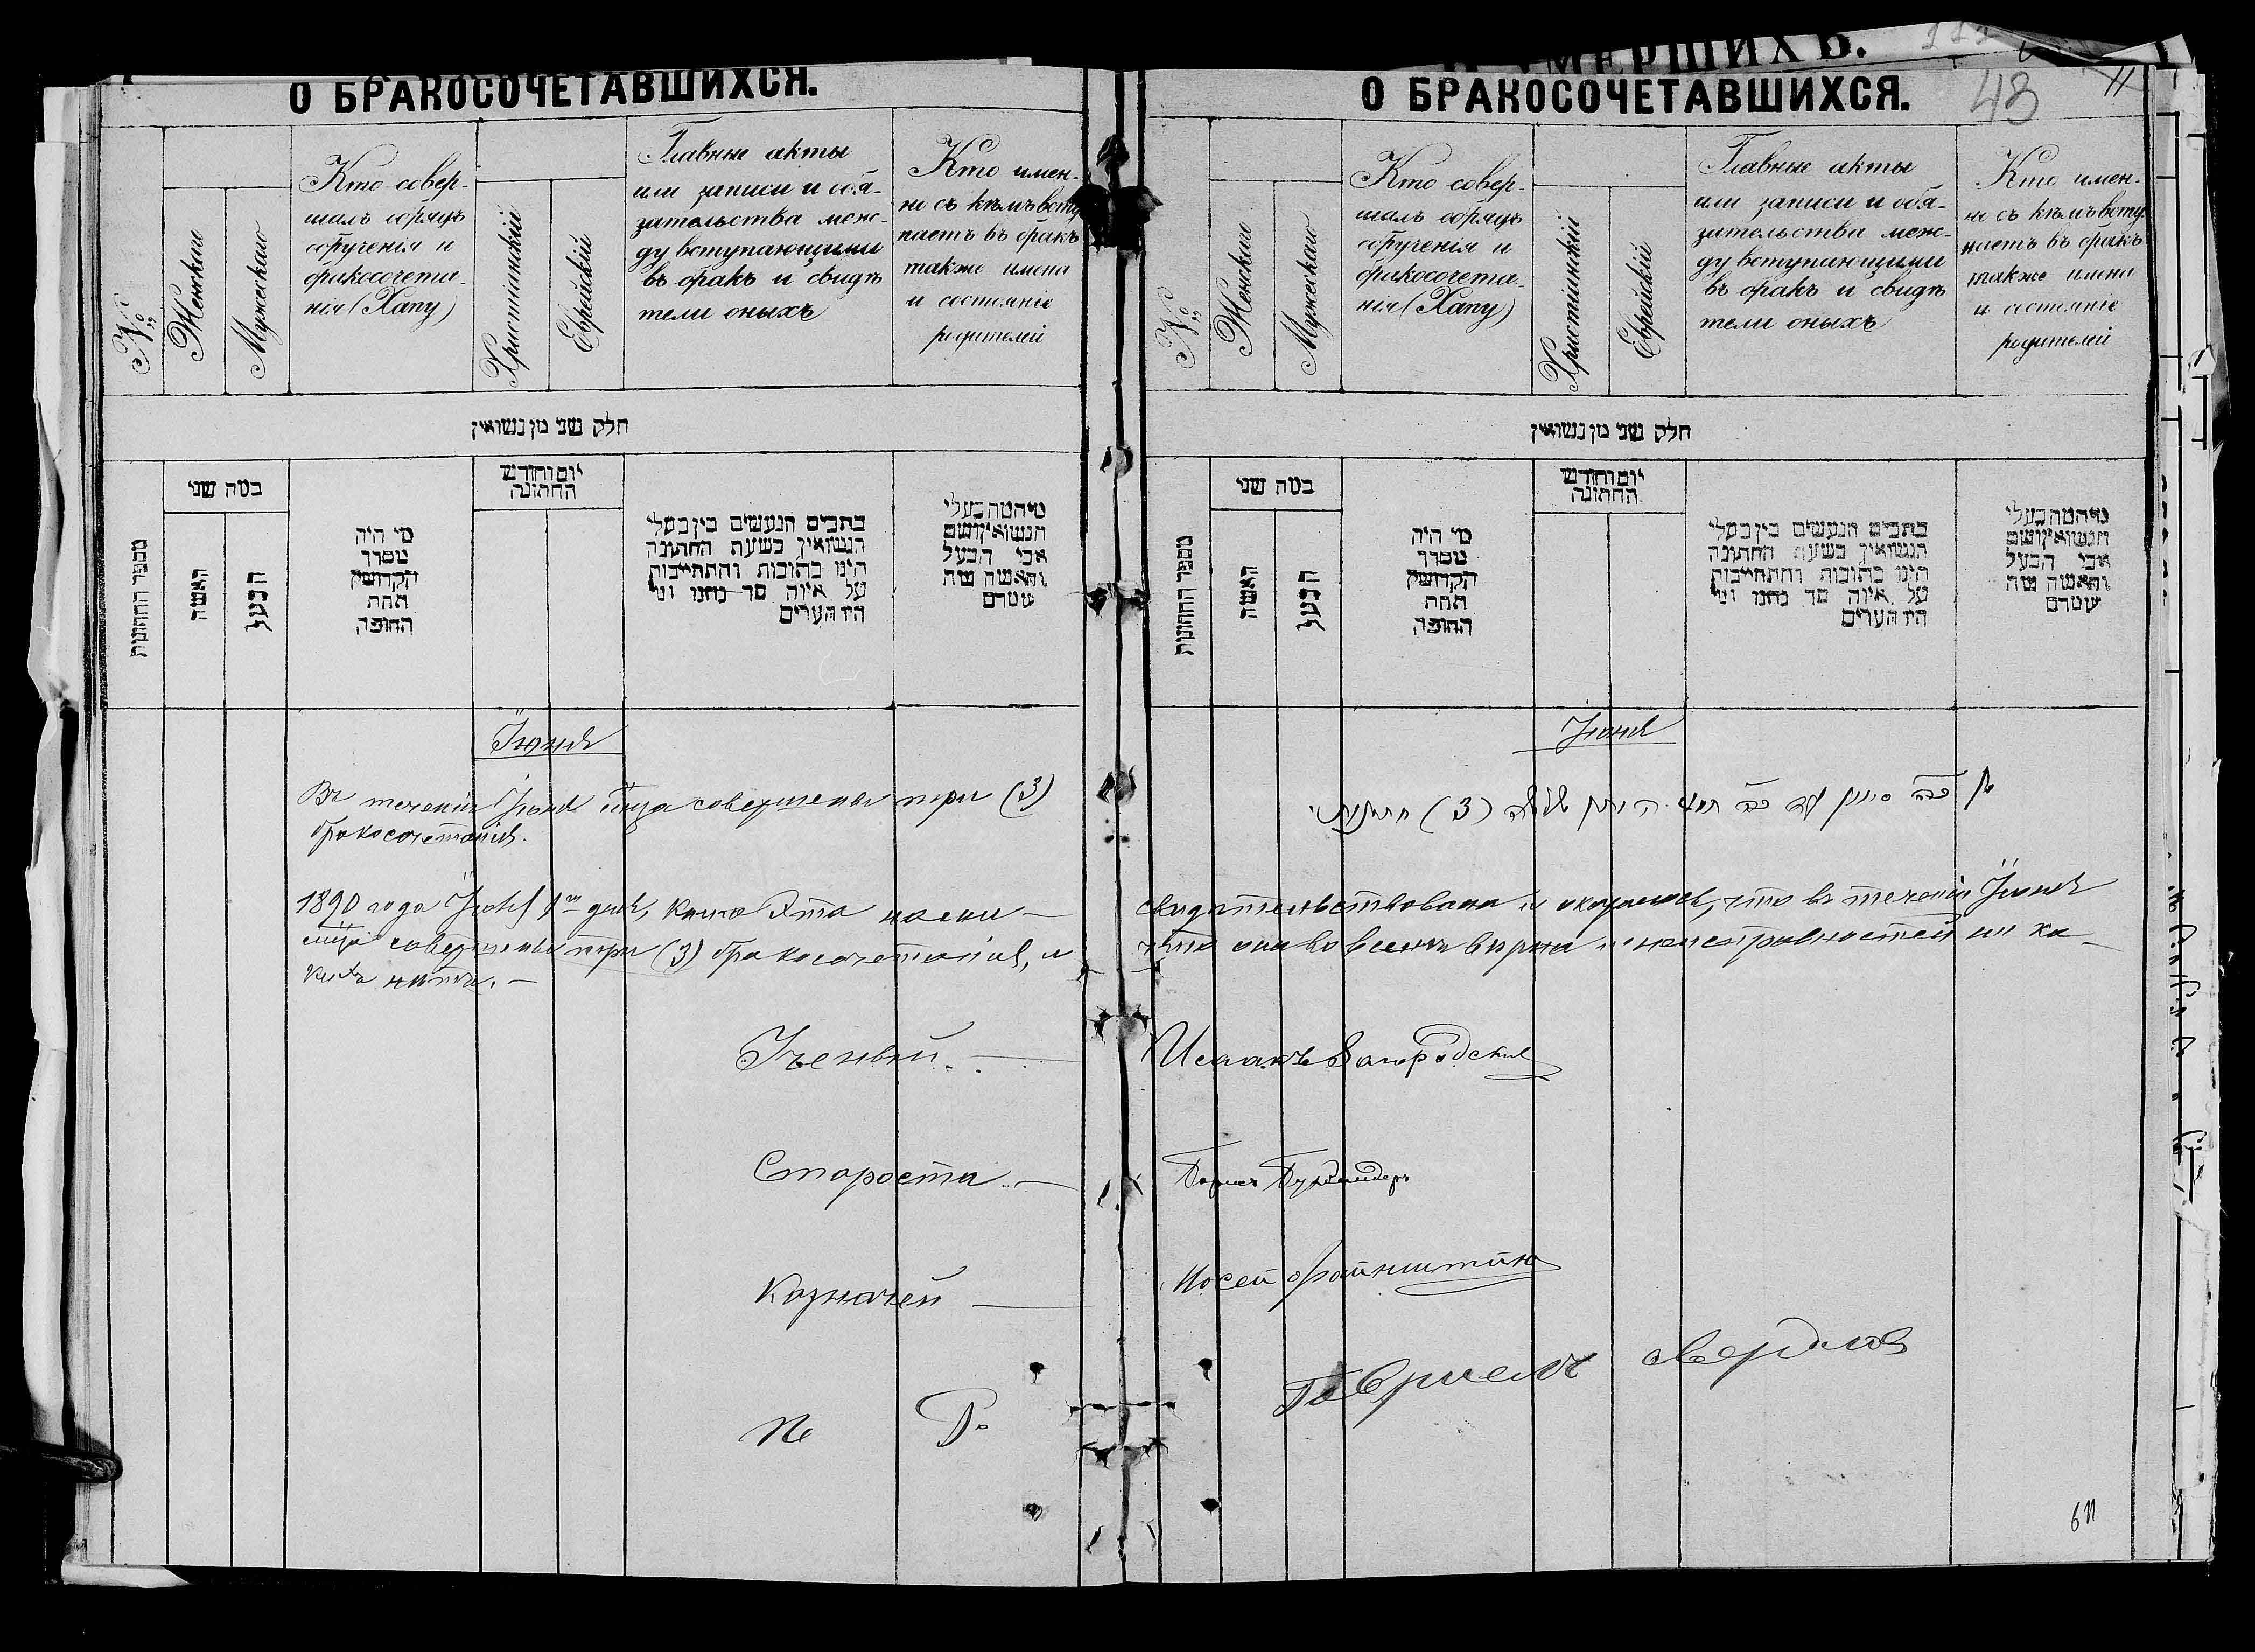 УМЕРШИХЪ.
О БРАКОСОЧЕТАВШИХСЯ.
№
Женскаго
Мужескаго
Кто совер-
шалъ обрядъ
обрученія и
бракосочета-
нія (Хапу)
Христіанскій
Еврейскій
Главные акты
или записи и обя-
зательства меж-
ду вступающими
въ бракъ и свидѣ
тели оныхъ
Кто имен-
но съ кѣмъ всту
паетъ въ бракъ
также имена
и состояніе
родителей
חלק שני מן נשואין
מספר החתונות
במה שני
האשה
הבעל
מי היה
מסדר
הקדושין
תחת
החופה
יום וחודש
החתונה
כתבים הנעשים בין בעלי
הנשואין בשעת החתונה
היינו כתובות והתחייבות
על איזה סך נתנו ומי
היו העדים
מי המה בעלי
הנשואין ושם
אבי הבעל
והאשה מה
שטרם
Іюня
Въ теченіи Іюня мца совершены три (3)
бракосочетанія.
1890 года Іюля 1 дня, книга эта нами
мца совершены три (3) бракосочетанія, и
кихъ нѣтъ. —
Ученый. —
Староста. —
Казначей —
О БРАКОСОЧЕТАВШИХСЯ.
48
11
№
Женскаго
Мужескаго
Кто совер-
шалъ обрядъ
обрученія и
бракосочета-
нія (Хапу)
Христіанскій
Еврейскій
Главные акты
или записи и обя-
зательства меж-
ду вступающими
въ бракъ и свидѣ
тели оныхъ
Кто имен-
но съ кѣмъ всту
паетъ въ бракъ
также имена
и состояніе
родителей
חלק שני מן נשואין
מספר החתונות
במה שני
האשה
הבעל
מי היה
מסדר
הקדושין
תחת
החופה
יום וחודש
החתונה
כתבים הנעשים בין בעלי
הנשואין בשעת החתונה
היינו כתובות והתחייבות
על איזה סך נתנו ומי
היו העדים
מי המה בעלי
הנשואין ושם
אבי הבעל
והאשה מה
שטרם
Іюня
סיון עד (3)
свидѣтельствована и оказалось, что въ теченіи Іюня
что она во всемъ вѣрна и неисправностей ни ка-
Исаакъ Загородскій
Іосей Файнштейн
Гавріелъ Свердлов